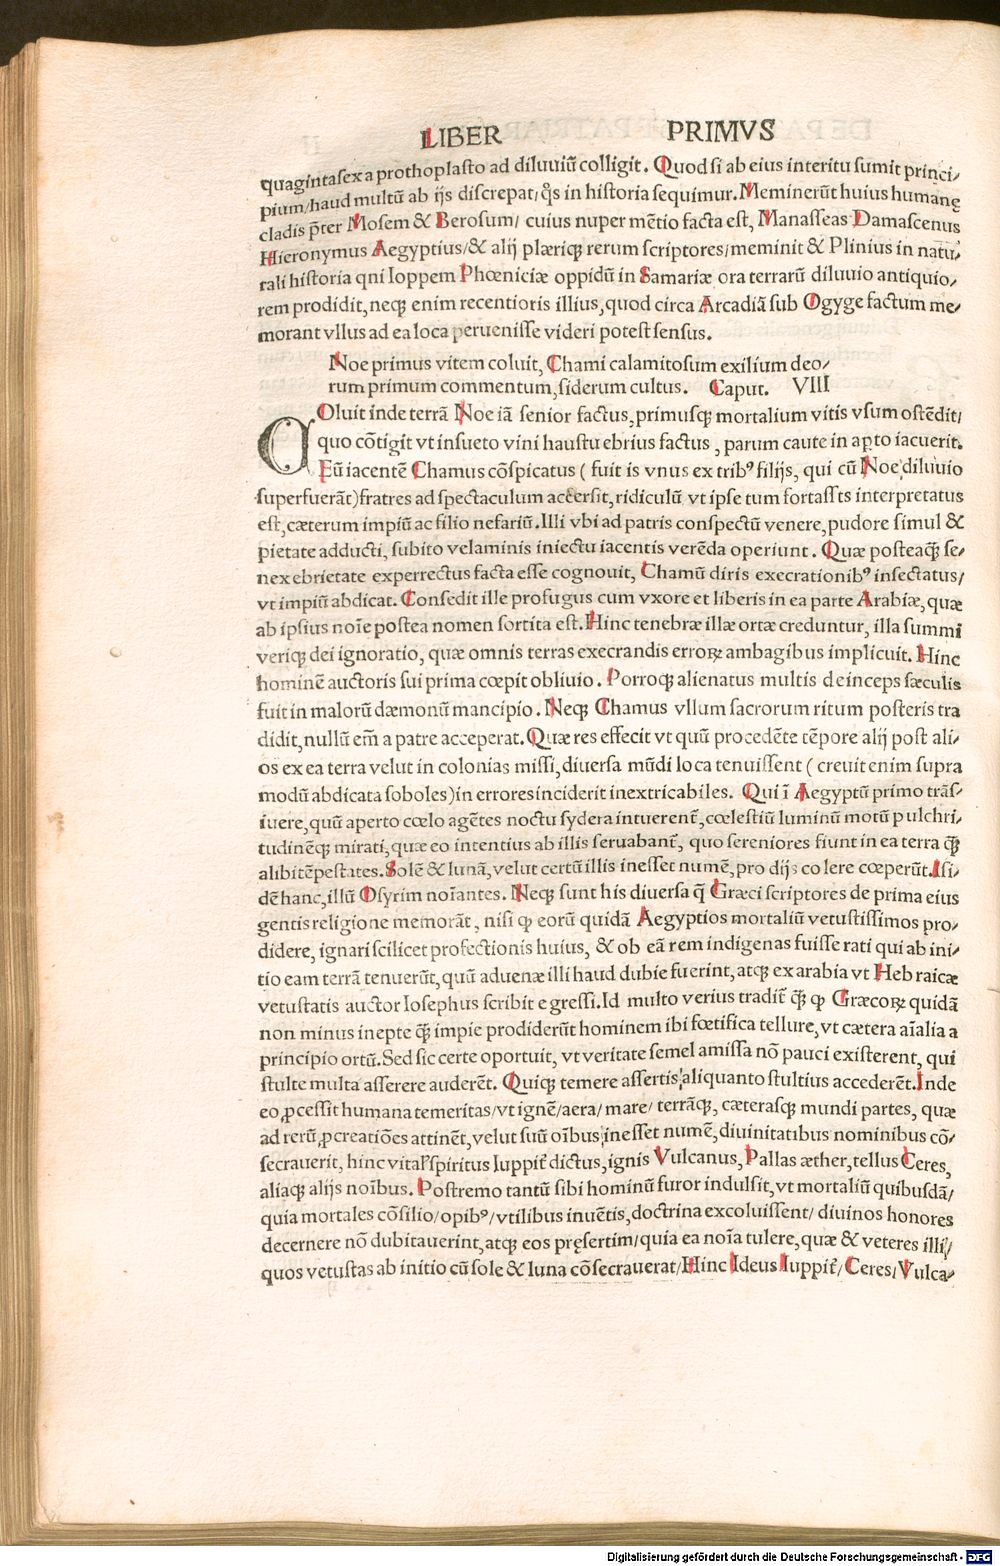 LIBER PRIMVS
quagintasex a prothoplasto ad diluuiũ colligit. Quod si ab eius interitu sumit princi/
pium/haud multũ ab ijs discrepat, q̃s in historia sequimur. Meminerũt huius humanę
cladis p̃ter Mosem & Berosum/ cuius nuper mẽtio facta est, Manasseas Damascenus
Hieronymus Aegyptius/& alij plæriqꝫ rerum scriptores/meminit & Plinius in natu/
rali historia qni Ioppem Phœniciæ oppidũ in Samariæ ora terrarũ diluuio antiquio/
rem prodidit, neqꝫ enim recentioris illius, quod circa Arcadiã sub Ogyge factum me/
morant vllus ad ea loca peruenisse videri potest sensus.
Noe primus vitem coluit, Chami calamitosum exilium deo/
rum primum commentum, siderum cultus. Caput. VIII
COluit inde terrã Noe iã senior factus, primusqꝫ mortalium vitis vsum ostẽdit/
quo cõtigit vt insueto vini haustu ebrius factus, parum caute in apto iacuerit.
Eũ iacentẽ Chamus cõspicatus ( fuit is vnus ex tribꝰ filijs, qui cũ Noe diluuio
superfuerãt) fratres ad spectaculum accersit, ridiculũ vt ipse tum fortassts interpretatus
est, cæterum impiũ ac filio nefariũ. Illi vbi ad patris conspectũ venere, pudore simul &
pietate adducti, subito velaminis iniectu iacentis verẽda operiunt. Quæ posteaqꝫ̃ se/
nex ebrietate experrectus facta esse cognouit, Chamũ diris execrationibꝰ insectatus/
vt impiũ abdicat. Consedit ille profugus cum vxore et liberis in ea parte Arabiæ, quæ
ab ipsius noĩe postea nomen sortita est. Hinc tenebræ illæ ortæ creduntur, illa summi
veriqꝫ dei ignoratio, quæ omnis terras execrandis erroꝝ ambagibus implicuit. Hinc
hominẽ auctoris sui prima cœpit obliuio. Porroqꝫ alienatus multis deinceps sæculis
fuit in malorũ dæmonũ mancipio. Neqꝫ Chamus vllum sacrorum ritum posteris tra
didit, nullũ em̃ a patre acceperat. Quæ res effecit vt quũ procedẽte tẽpore alij post ali/
os ex ea terra velut in colonias missi, diuersa mũdi loca tenuissent ( creuit enim supra
modũ abdicata soboles) in errores inciderit inextricabiles. Qui ĩ Aegyptũ primo trãs/
iuere, quũ aperto cœlo agẽtes noctu sydera intuerent̃, cœlestiũ luminũ motũ pulchri/
tudinẽqꝫ mirati, quæ eo intentius ab illis seruabant̃, quo sereniores fiunt in ea terra qꝫ̃
alibi tẽpestates. Solẽ & lunã, velut certũ illis inesset numẽ, pro dijs colere cœperũt. Isi/
dẽ hanc, illũ Osyrim noĩantes. Neqꝫ sunt his diuersa q̃ Græci scriptores de prima eius
gentis religione memorãt, nisi ꝙ eorũ quidã Aegyptios mortaliũ vetustissimos pro/
didere, ignari scilicet profectionis huius, & ob eã rem indigenas fuisse rati qui ab ini/
tio eam terrã tenuerũt, quũ aduenæ illi haud dubie fuerint, atqꝫ ex arabia vt Hebraicæ
vetustatis auctor Iosephus scribit egressi. Id multo verius tradit̃ qꝫ̃ ꝙ Græcoꝝ quidã
non minus inepte qꝫ̃ impie prodiderũt hominem ibi fœtifica tellure, vt cætera aĩalia a
principio ortũ. Sed sic certe oportuit, vt veritate semel amissa nõ pauci existerent, qui
stulte multa asserere auderẽt. Quiqꝫ temere assertis, aliquanto stultius accederẽt. Inde
eo ꝓcessit humana temeritas/vt ignẽ/aera/ mare/ terrãqꝫ, cæterasqꝫ mundi partes, quæ
ad rerũ ꝓcreatiões attinẽt, velut suũ oĩbus inesset numẽ, diuinitatibus nominibus cõ/
secrauerit, hinc vital' spiritus Iuppit̃ dictus, ignis Vulcanus, Pallas æther, tellus Ceres,
aliaqꝫ alijs noĩbus. Postremo tantũ sibi hominũ furor indulsit, vt mortaliũ quibusdã/
quia mortales cõsilio/opibꝰ/vtilibus inuẽtis, doctrina excoluissent/ diuinos honores
decernere nõ dubitauerint, atqꝫ eos pręsertim/quia ea noĩa tulere, quæ & veteres illi/
quos vetustas ab initio cũ sole & luna cõsecrauerat/Hinc Ideus Iuppit̃/ Ceres/ Vulca/
Digitalisierung gefördert durch die Deutsche Forschungsgemeinschaft - DFG